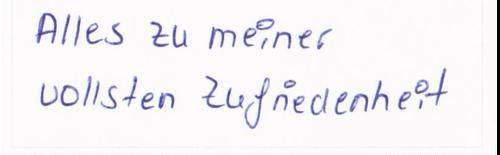 Alles zu meiner
vollsten Zufriedenheit